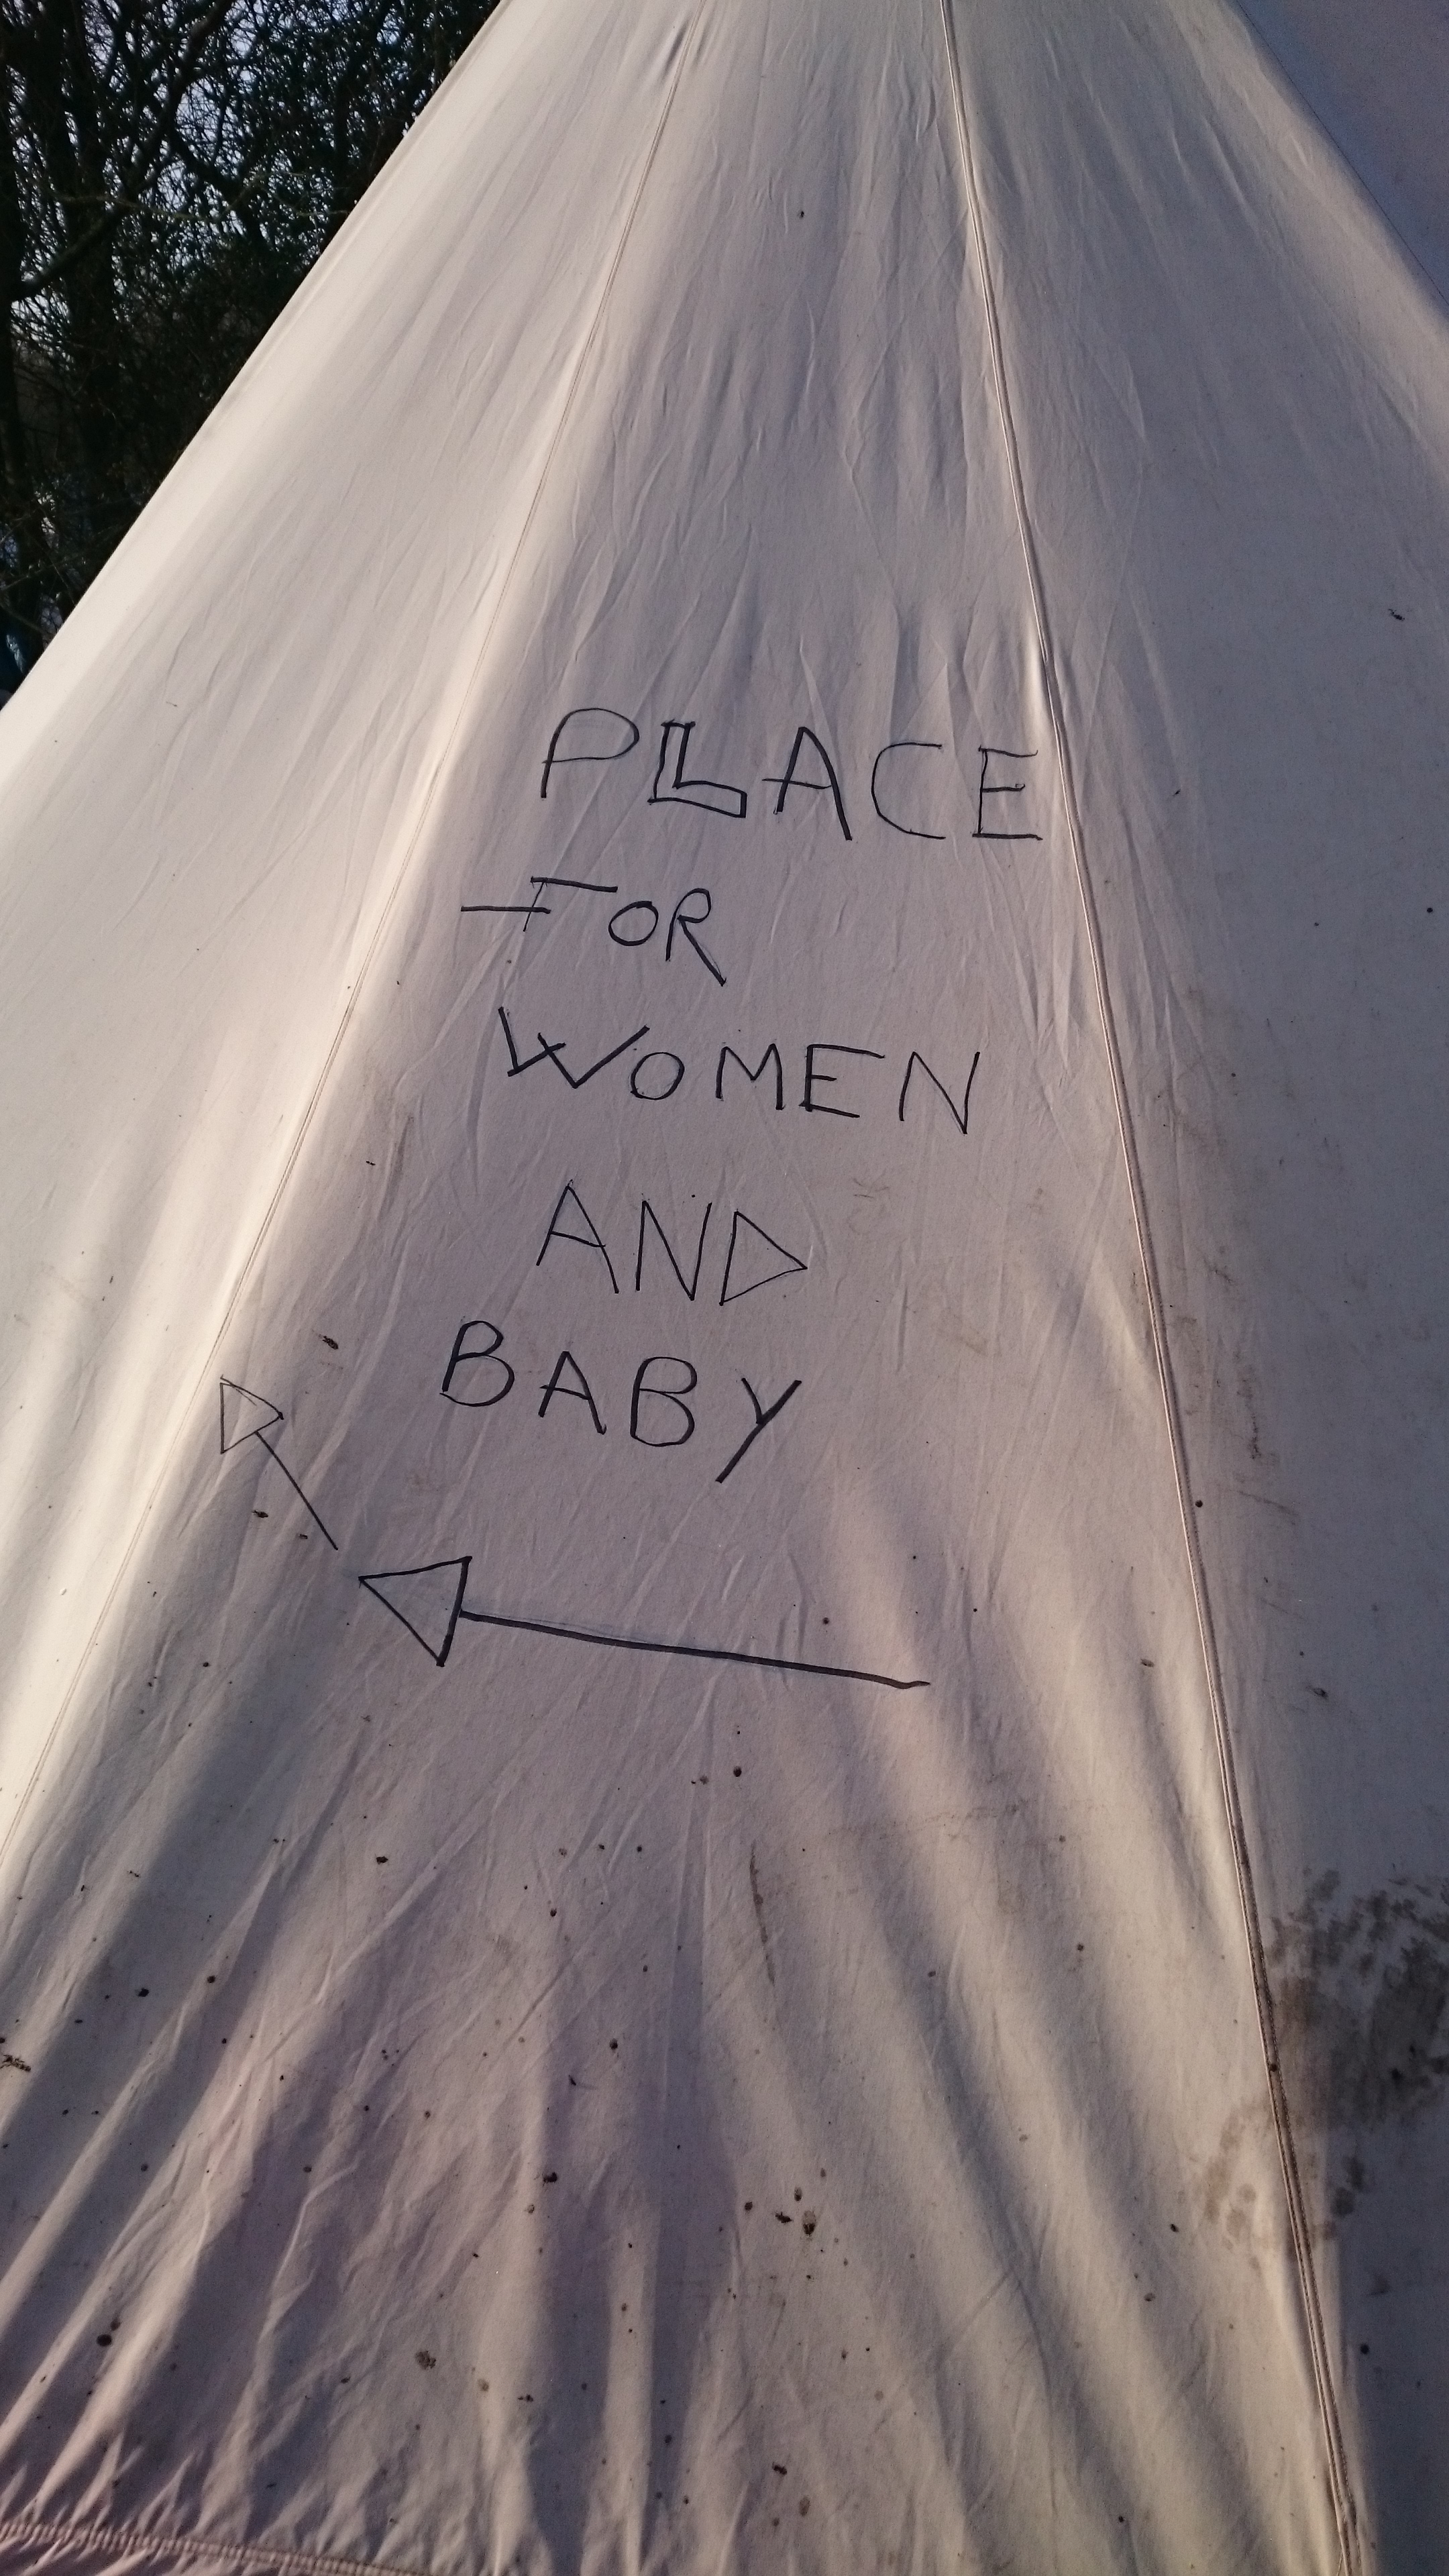 PLACE
FOR
WOMEN
AND
BABY